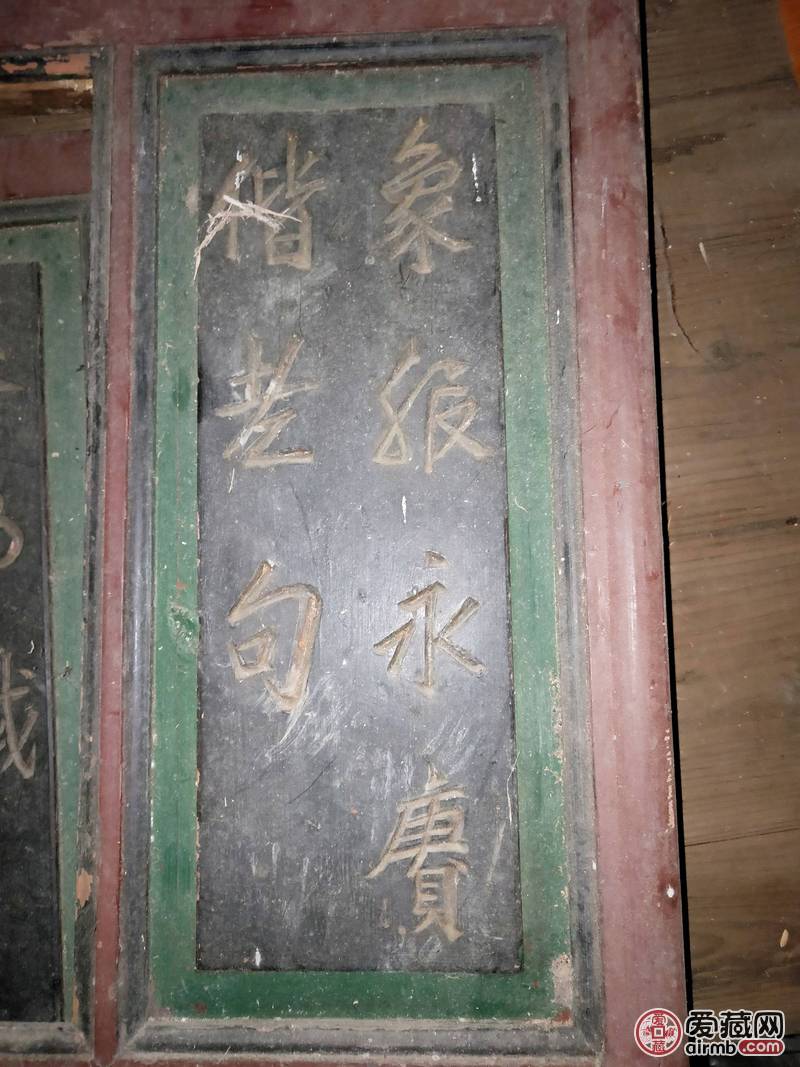 象服永賡
偕老句
爱藏网
airmb.com